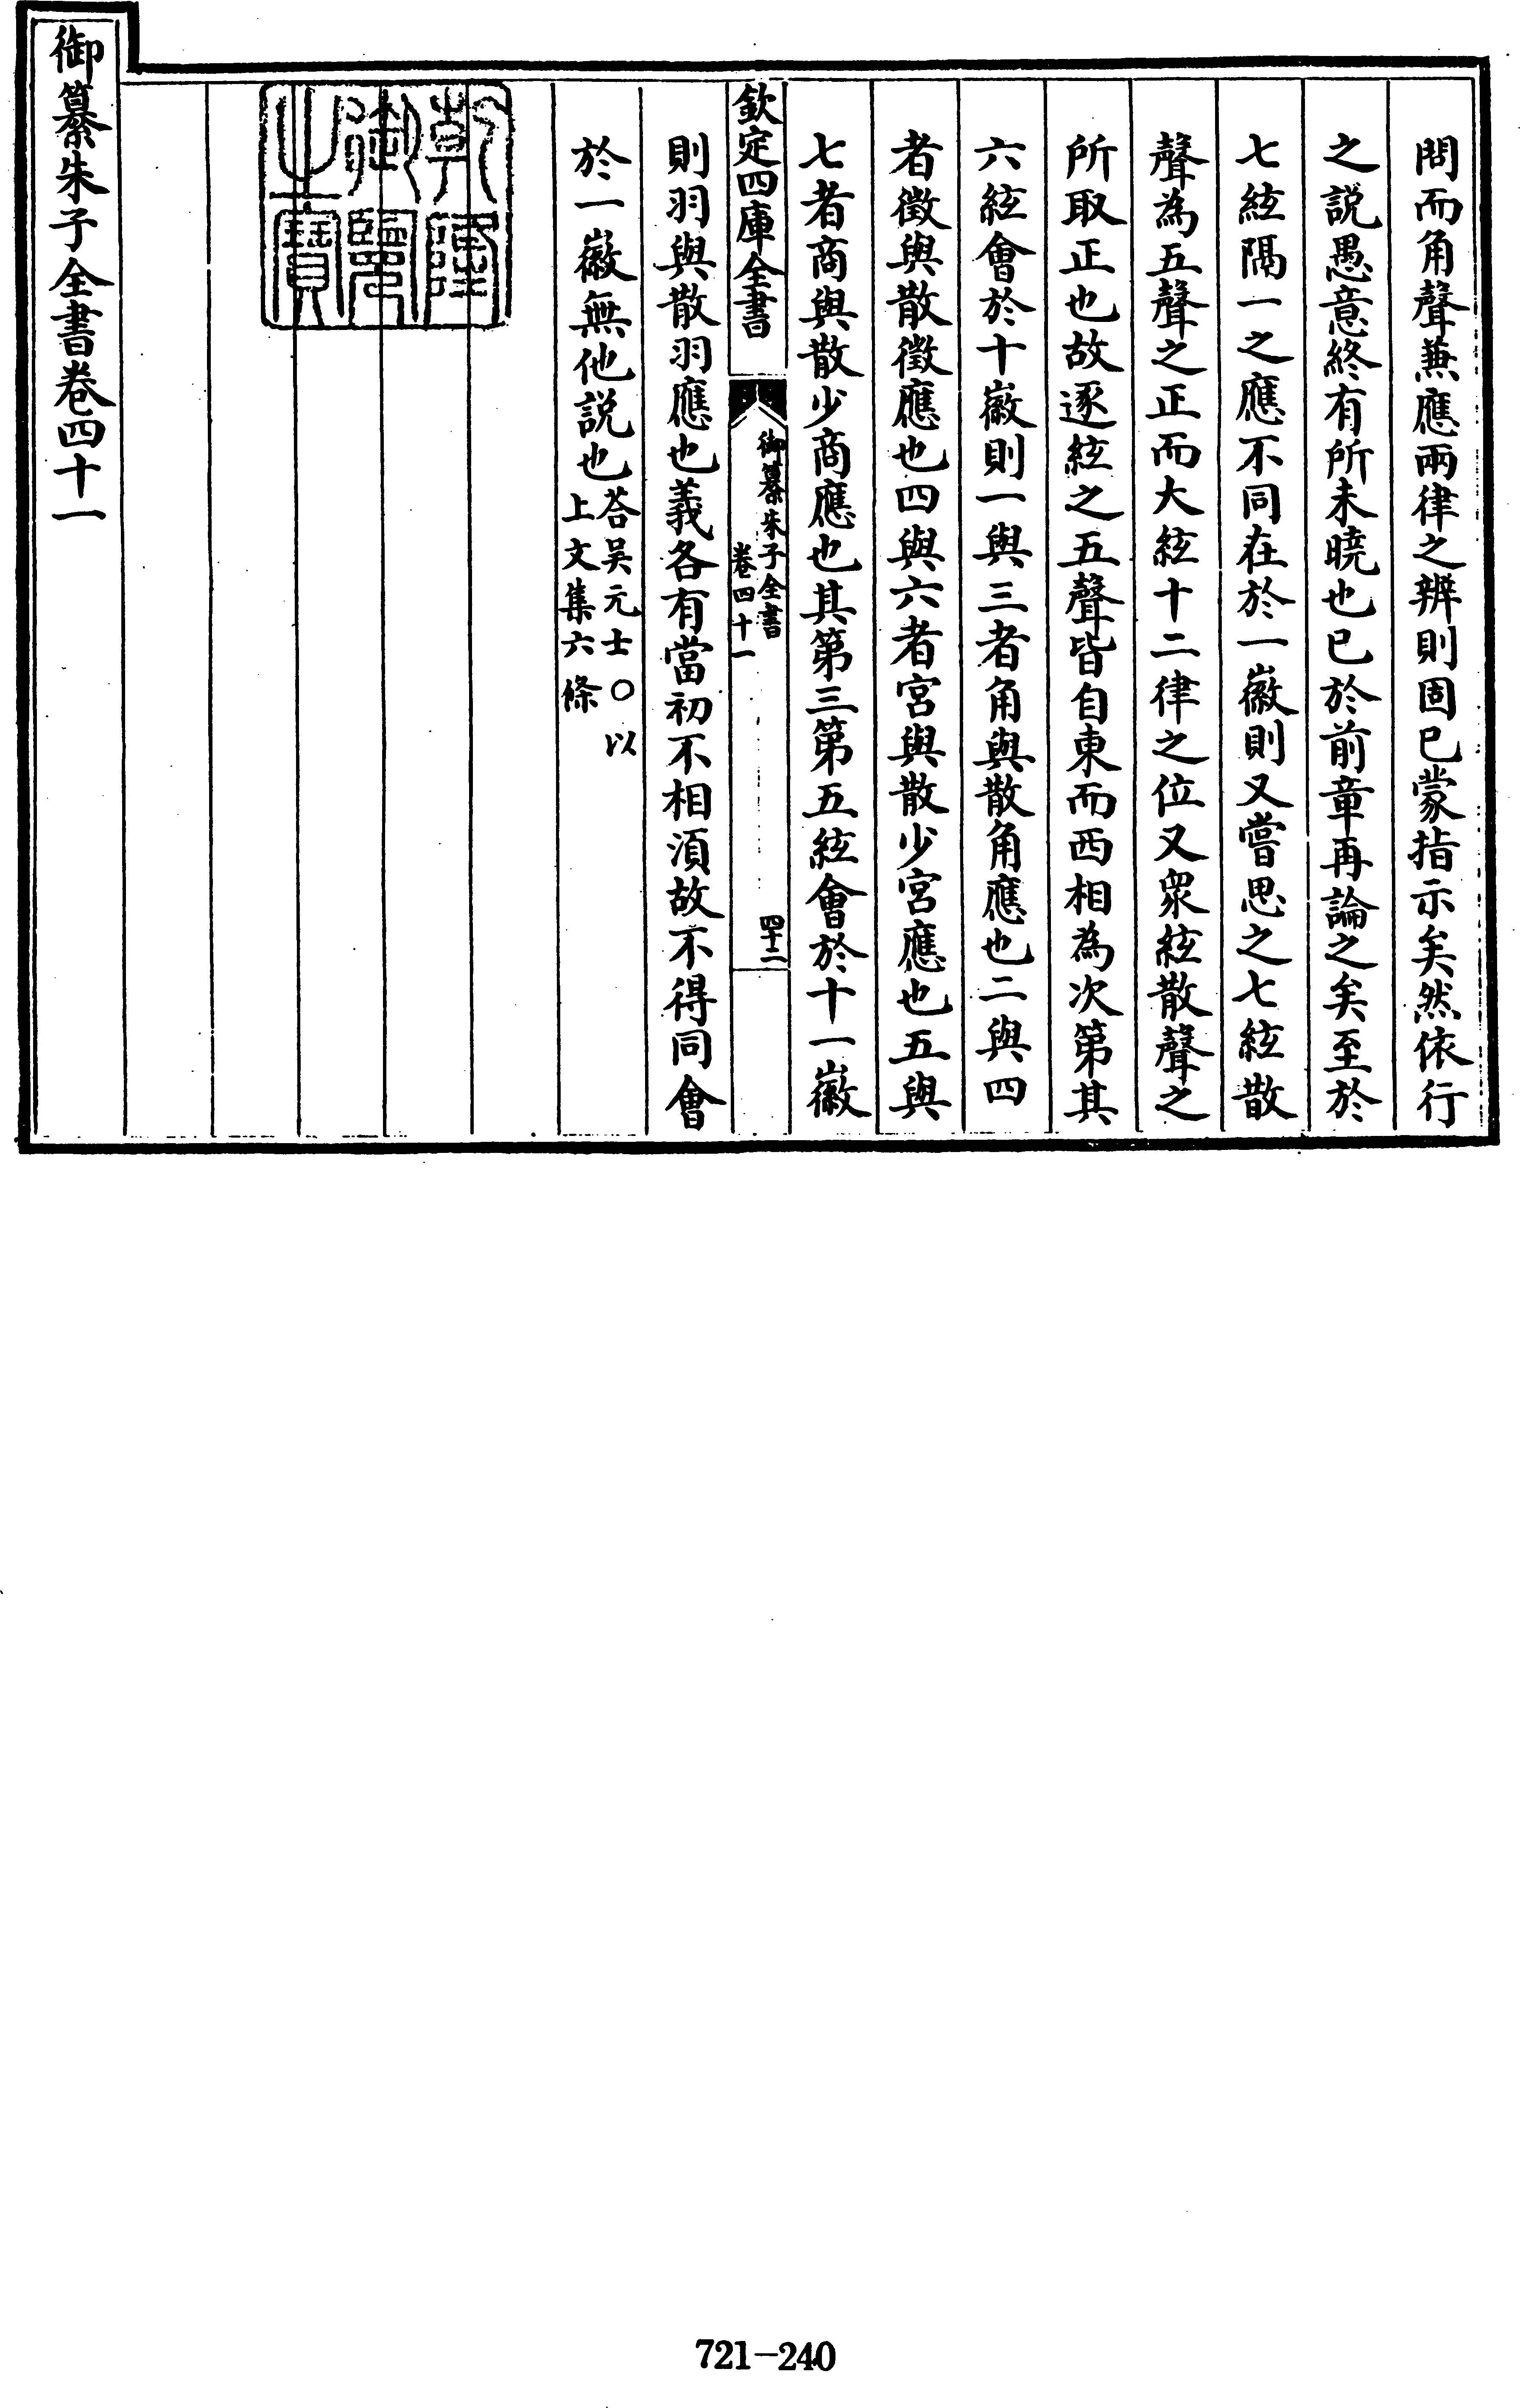 問而角聲兼應兩律之辨則固已蒙指示矣然依行
之説愚意終有所未曉也已於前章再論之矣至於
七絃隔一之應不同在於一徽則又嘗思之七絃散
聲為五聲之正而大絃十二律之位又衆絃散聲之
所取正也故逐絃之五聲皆自東而西相為次第其
六絃會於十徽則一與三者角與散角應也二與四
者徵與散徵應也四與六者宮與散少宮應也五與
七者商與散少商應也其第三第五絃會於十一徽
欽定四庫全書
御纂朱子全書
卷四十一
四十二
則羽與散羽應也義各有當初不相須故不得同會
於一徽無他説也
荅吳元士〇以
上文集六條
乾隆
御覽
之寶
御纂朱子全書卷四十一
721-240